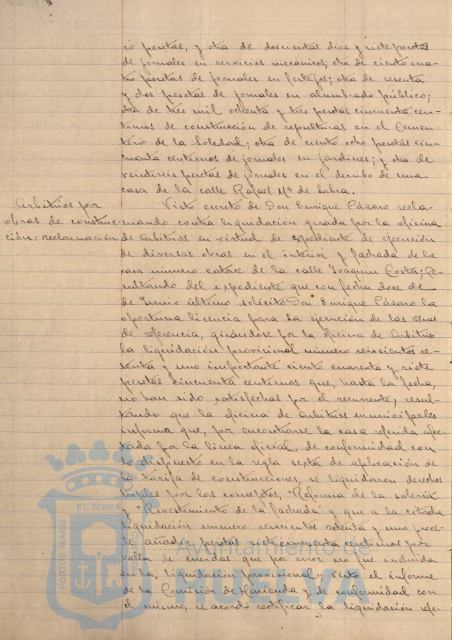 co pesetas, y otra de doscientas diez y siete pesetas
de jornales en servicios mecánicos; otra de ciento cua-
tro pesetas de jornales en festejos; otra de sesenta
y dos pesetas de jornales en alumbrado público;
otra de tres mil ochenta y tres pesetas cincuenta cen-
timos de construcción de sepulturas en el Cemen-
terio de la Soledad; otra de ciento ocho pesetas cin-
cuenta centimos de jornales en jardines; y otra de
veintiseis pesetas de jornales en el derribo de una
casa de la calle Rafael Mª de Labra.
Arbitrios por
obras de construc-
ción: reclamación
Visto escrito de Don Enrique Pázaro recla-
mando contra liquidación girada por la oficina
de Arbitrios en virtud de expediente de ejecución
de diversas obras en el interior y fachada de la
casa número catorce de la calle Joaquin Costa; Re-
sultando del expediente que con fecha doce de
de Junio último solicitó Don Enrique Pázaro la
oportuna licencia para la ejecución de las obras
de referencia, girándose por la oficina de Arbitrios
la liquidación provisional número seiscientos se-
senta y uno importante ciento cuarenta y siete
pesetas cincuenta centimos que, hasta la fecha,
no han sido satisfechas por el recurrente; resul-
tando que la oficina de Arbitrios municipales
informa que, por encontrarse la casa referida afec-
tada por la linea oficial, de conformidad con
lo dispuesto en la regla sexta de aplicación de
la tarifa de construcciones, se liquidaron derechos
triples por los conceptos, "Reforma de la solería"
y "Revestimiento de la fachada" y que a la citada
liquidación número seiscientos sesenta y uno proce-
de añadir pesetas siete cincuenta centimos por
valla que por error no fue incluida
en la liquidación provisional; Visto el informe
de la Comisión de Hacienda y de conformidad con
el mismo, se acordó rectificar la liquidación refe-
Ayuntamiento de
HUELVA
PORTUS MARIS
ET TERRÆ